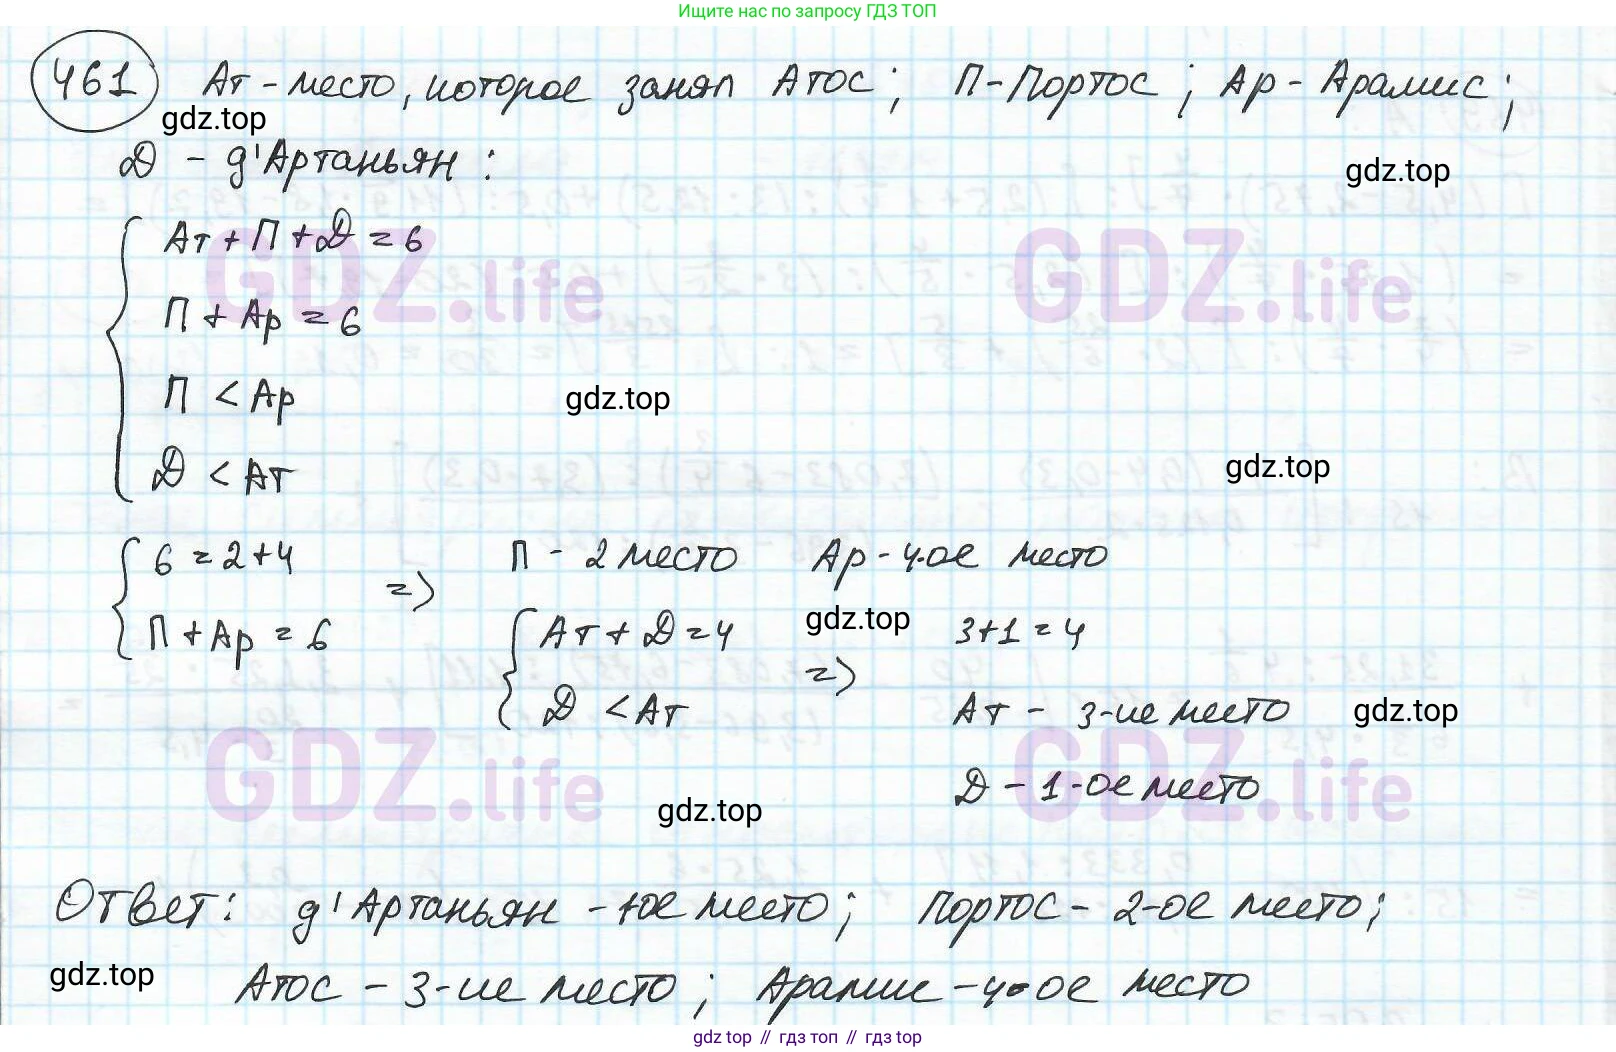 Ищите нас по запросу ГДЗ ТОП
461 Ат - место, которое занял Атос; П - Портос; Ар - Арамис;
gdz.top
Д - д'Артаньян:
gdz.top
Ат + П + Д = 6
GDZ.life GDZ.life
П + Ар = 6
П < Ар
gdz.top
Д < Ат
gdz.top
6 = 2+4 => П - 2 место Ар - 4-ое место
П + Ар = 6
Ат + Д = 4 => 3+1 = 4
gdz.top
Д < Ат
Ат - 3-ие место
gdz.top
GDZ.life GDZ.life
Д - 1-ое место
gdz.top
Ответ: д'Артаньян - 1ое место; Портос - 2-ое место;
gdz.top
Атос - 3-ие место; Арамис - 4-ое место
gdz top // гдз топ // gdz top